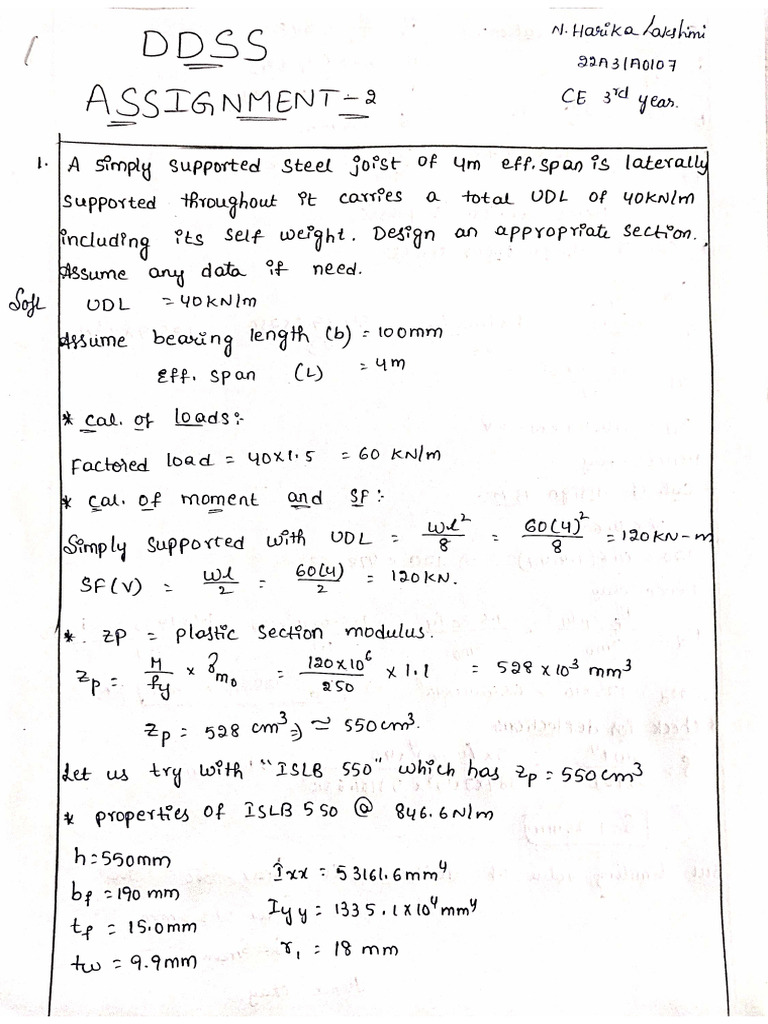 DDSS
ASSIGNMENT-2
N. Harika Lakshmi
22A31A0107
CE 3rd year.
1. A simply supported steel joist of 4m eff. span is laterally
supported throughout it carries a total UDL of 40KN/m
including its self weight. Design an appropriate section.
Assume any data if need.
Sol: UDL = 40KN/m
Assume bearing length (b) = 100mm
Eff. span (L) = 4m
* Cal. of loads:-
Factored load = 40×1.5 = 60 KN/m
* Cal. of moment and SF:-
Simply supported with UDL = wl²/8 = 60(4)²/8 = 120KN-m
SF(V) = wl/2 = 60(4)/2 = 120KN.
* ZP = plastic section modulus.
Zp = M/fy × γm0 = 120×10⁶/250 × 1.1 = 528×10³ mm³
Zp = 528 cm³ ⇒ ≃ 550cm³.
Let us try with "ISLB 550" which has Zp = 550cm³
* properties of ISLB 550 @ 846.6N/m
h = 550mm
bf = 190 mm
tf = 15.0mm
tw = 9.9mm
Ixx = 53161.6mm⁴
Iyy = 1335.1×10⁴mm⁴
r1 = 18 mm